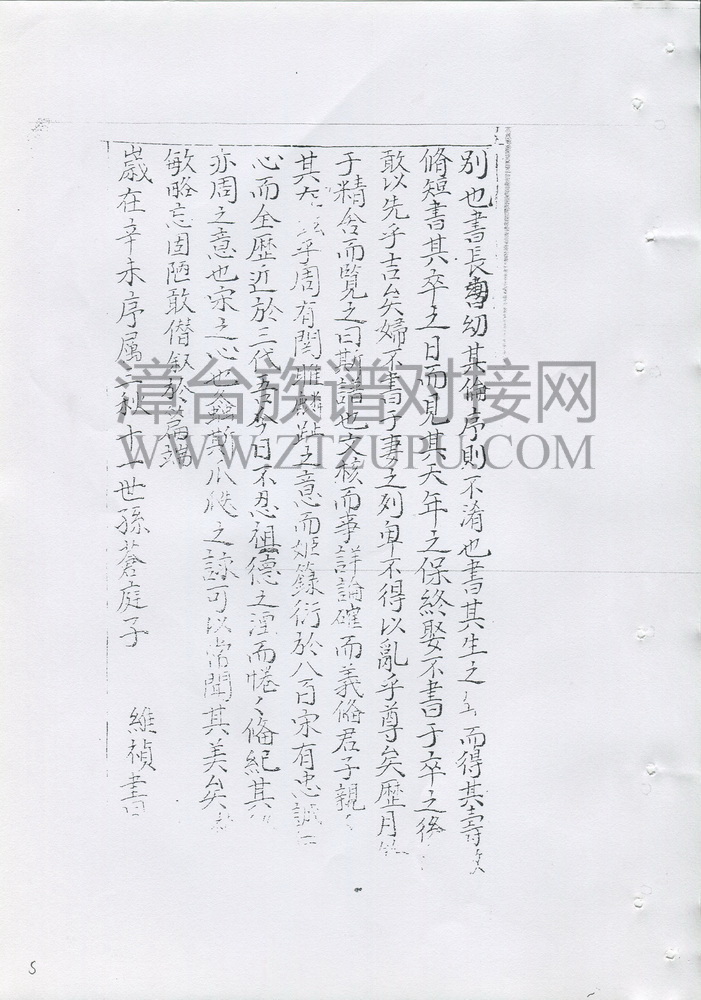 別也書長書幼其倫序則不淆也書其生之 而得其壽
脩短書其卒之日而見其天年之保終娶不書于卒之後
敢以先乎吉矣婦不書于妻之列卑不得以亂乎尊矣歷月
于精舍而覧之曰斯譜也文核而事詳論確而義俻君子親
其 乎周有関雎麟趾之意而姬籙衍於八百宋有忠誠
心而全歷近於三代吾今日不忍祖德之湮而惓々脩紀其
亦周之意也宋之心也螽斯瓜瓞之 可以常聞其美矣
敏略忘固陋敢僭叙於篇端
歲在辛未序属 秋十一世孫蒼庭子 維禎書
漳台族谱对接网
WWW.ZTZUPU.COM
5